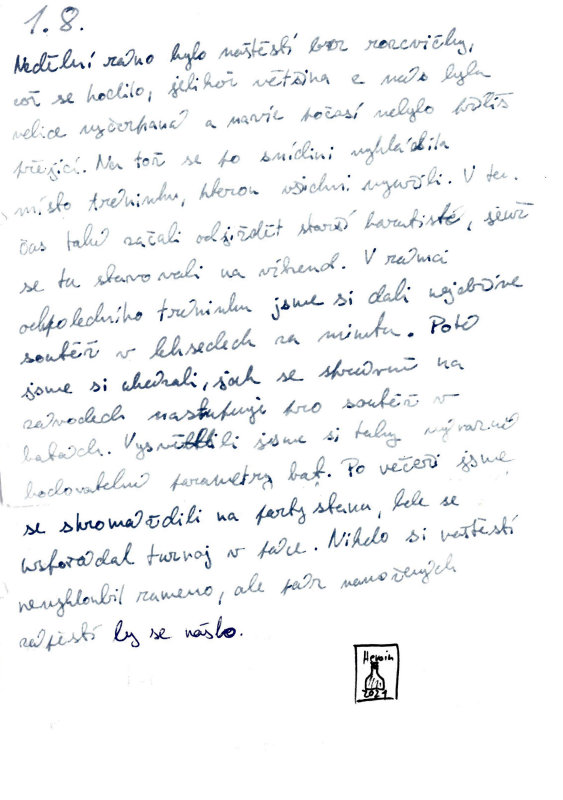 1. 8.
Nedělní ráno bylo naštěstí bez rozcvičky,
což se hodilo, jelikož většina z nás byla
velice vyčerpaná a navíc počasí nebylo příliš
přející. Na tož se po snídini vyhlásila
místo tréninku, kterou všichni využili. V ten
čas také začali odjíždět staří karatisté, jenž
se tu stavovali na víkend. V rámci
odpoledního tréninku jsme si dali nejdříve
soutěž v leh sedech za minutu. Poté
jsme si ukázali, jak se správně na
závodech nastupuje pro soutěž v
katách. Vysvětlili jsme si taky výrazně
bodovatelné parametry kat. Po večeři jsme
se shromáždili na party stanu, kde se
uspořádal turnaj v páce. Nikdo si naštěstí
nevykloubil rameno, ale pár namožených
zápěstí by se našlo.
Heroin
2021